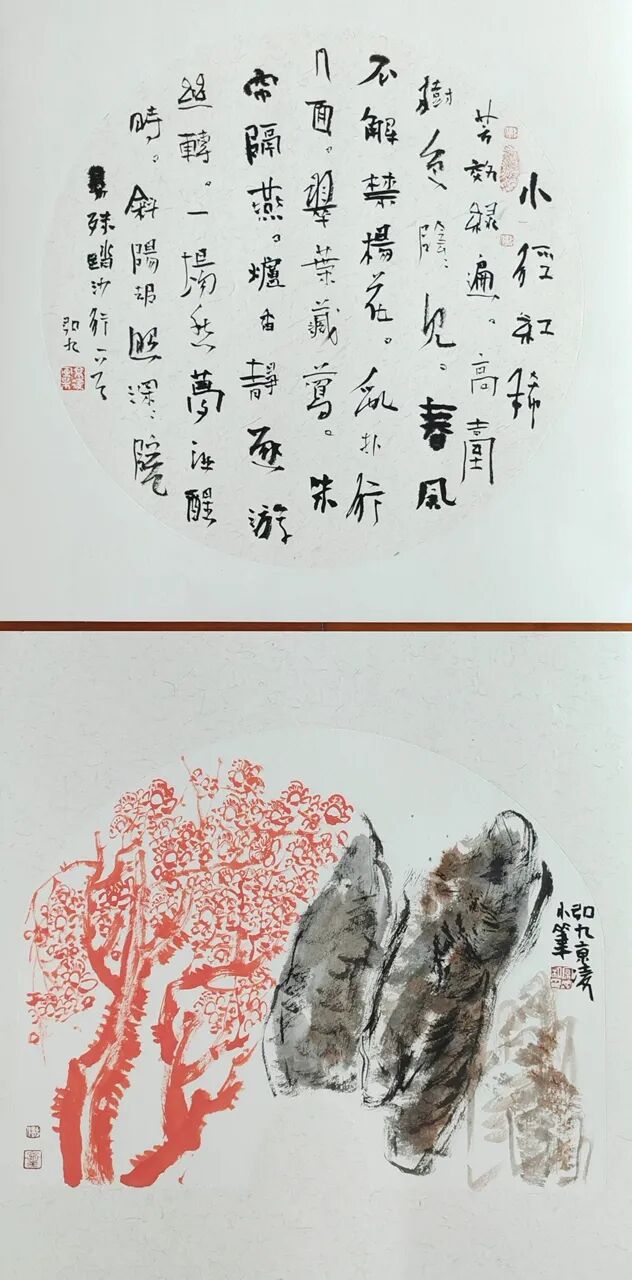 小徑紅稀
芳郊緑遍。高臺
樹色陰〻見。春風
不解禁楊花。亂扑行
人面。翠葉藏鶯。朱
帘隔燕。爐香靜逐游
丝轉。一場愁夢酒醒
時。斜陽却照深〻院
晏殊踏沙行一首
弘九
弘九京
小筆